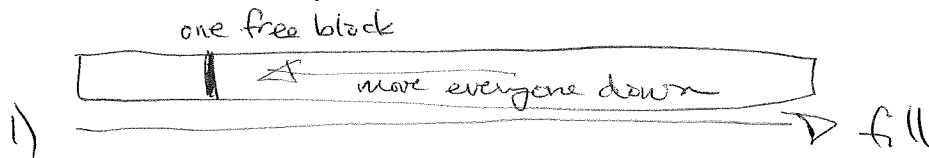 one free block
move everyone down
1) fill